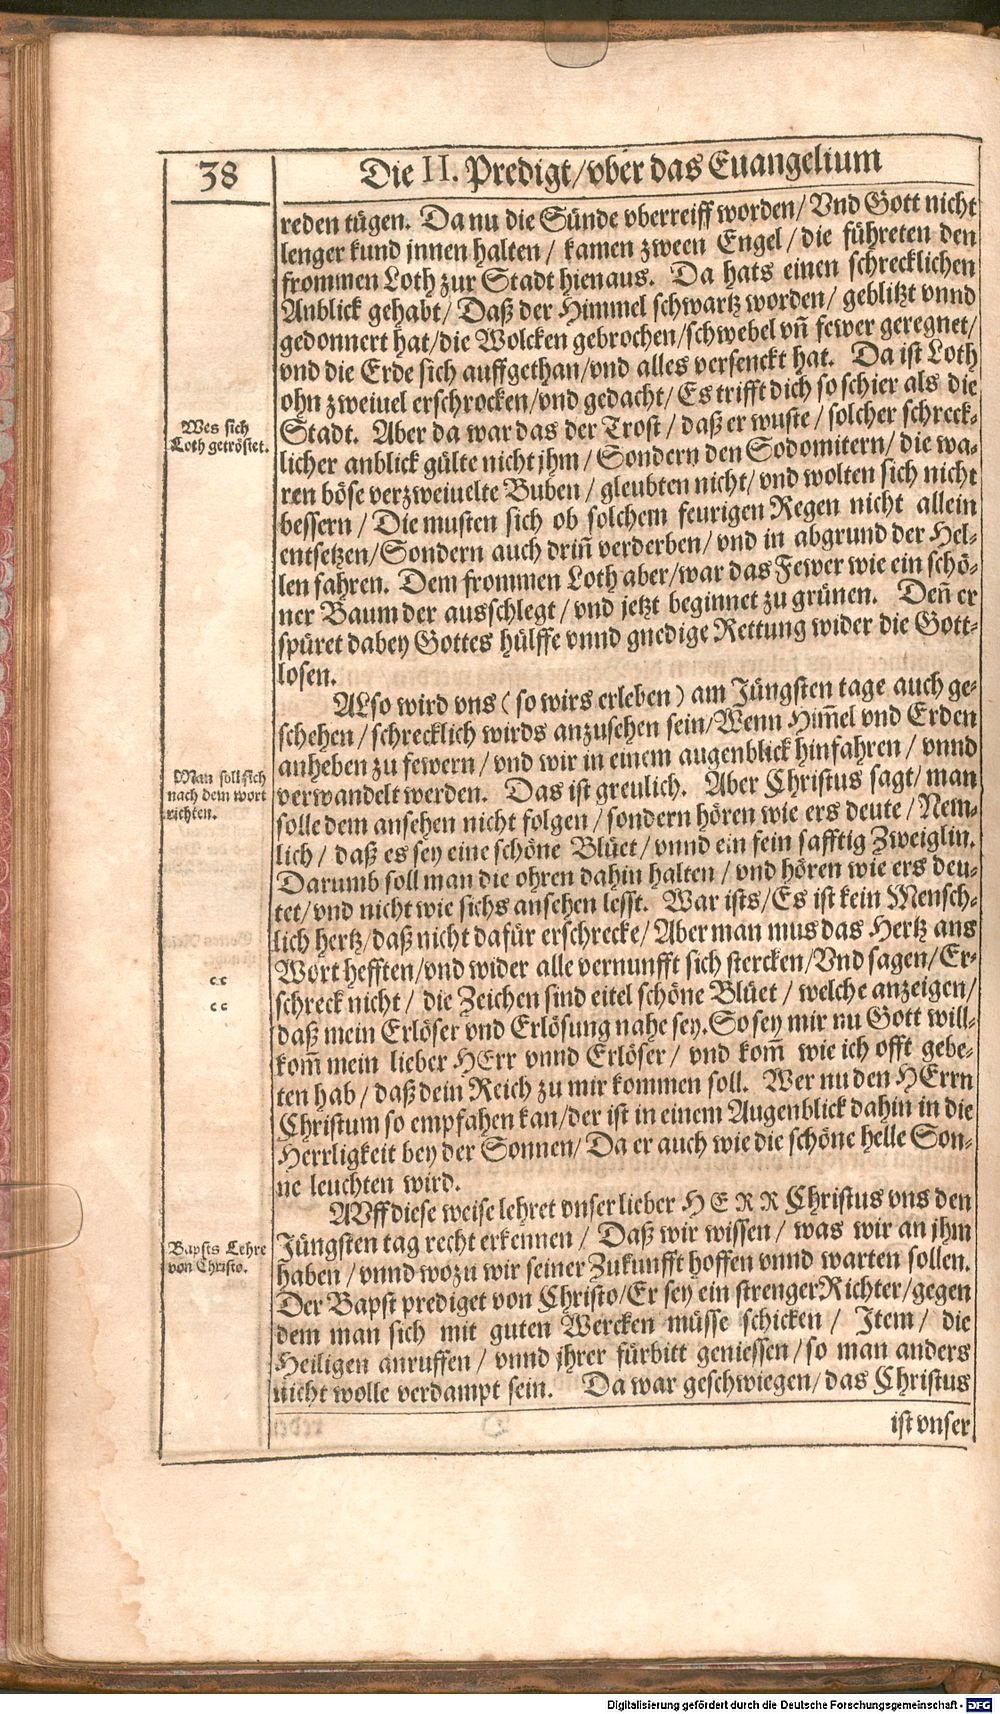 38
Die II. Predigt/vber das Euangelium
reden tügen. Da nu die Sünde vberreiff worden/ Vnd Gott nicht
lenger kund jnnen halten/ kamen zween Engel/ die führeten den
frommen Loth zur Stadt hienaus. Da hats einen schrecklichen
Anblick gehabt/ Daß der Himmel schwartz worden/ geblitzt vnnd
gedonnert hat/die Wolcken gebrochen/schwebel vn̄ fewer geregnet/
vnd die Erde sich auffgethan/vnd alles versenckt hat. Da ist Loth
ohn zweiuel erschrocken/vnd gedacht/ Es trifft dich so schier als die
Stadt. Aber da war das der Trost/ daß er wuste/ solcher schreck-
licher anblick gülte nicht jhm/ Sondern den Sodomitern/ die wa-
ren böse verzweiuelte Buben/ gleubten nicht/ vnd wolten sich nicht
bessern/ Die musten sich ob solchem feurigen Regen nicht allein
entsetzen/Sondern auch drin̄ verderben/ vnd in abgrund der Hel-
len fahren. Dem frommen Loth aber/war das Fewer wie ein schö-
ner Baum der ausschlegt/ vnd jetzt beginnet zu grünen. Den̄ er
spüret dabey Gottes hülffe vnnd gnedige Rettung wider die Gott-
losen.
Wes sich
Loth getröstet.
ALso wird vns (so wirs erleben) am Jüngsten tage auch ge-
schehen/ schrecklich wirds anzusehen sein/Wenn Him̄el vnd Erden
anheben zu fewern/ vnd wir in einem augenblick hinfahren/ vnnd
verwandelt werden. Das ist greulich. Aber Christus sagt/ man
solle dem ansehen nicht folgen/ sondern hören wie ers deute/ Nem-
lich/ daß es sey eine schöne Blüet/ vnnd ein fein safftig Zweiglin.
Darumb soll man die ohren dahin halten/ vnd hören wie ers deu-
tet/vnd nicht wie sichs ansehen lesst. War ists/Es ist kein Mensch-
lich hertz/daß nicht dafür erschrecke/ Aber man mus das Hertz ans
Wort hefften/vnd wider alle vernunfft sich stercken/Vnd sagen/Er-
schreck nicht/ die Zeichen sind eitel schöne Blüet/ welche anzeigen/
daß mein Erlöser vnd Erlösung nahe sey. So sey mir nu Gott will-
kom̄ mein lieber HErr vnnd Erlöser/ vnd kom̄ wie ich offt gebe-
ten hab/ daß dein Reich zu mir kommen soll. Wer nu den HErrn
Christum so empfahen kan/der ist in einem Augenblick dahin in die
Herrligkeit bey der Sonnen/ Da er auch wie die schöne helle Son-
ne leuchten wird.
Man soll sich
nach dem wort
richten.
cc
cc
AVff diese weise lehret vnser lieber HERR Christus vns den
Jüngsten tag recht erkennen/ Daß wir wissen/ was wir an jhm
haben/ vnnd wozu wir seiner Zukunfft hoffen vnnd warten sollen.
Der Bapst prediget von Christo/Er sey ein strenger Richter/gegen
dem man sich mit guten Wercken müsse schicken/ Item/ die
Heiligen anruffen/ vnnd jhrer fürbitt geniessen/so man anders
nicht wolle verdampt sein. Da war geschwiegen/das Christus
Bapsts Lehre
von Christo.
ist vnser
Digitalisierung gefördert durch die Deutsche Forschungsgemeinschaft - DFG